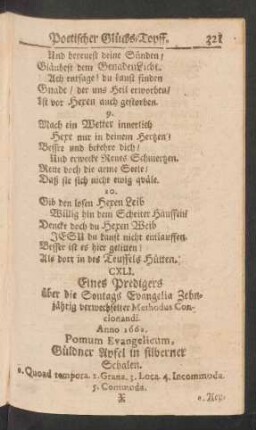 Poetischer Glücks-Topff. 321
Und bereuest deine Sünden/
Gläubest dem Genaden Licht.
Ach entsage/ du kanst finden
Gnade/ der uns Heil erworben/
Ist vor Hexen auch gestorben.
9.
Mach ein Wetter innerlich
Hexe nur in deinem Hertzen/
Bessre und bekehr dich/
Und erwecke Reues Schmertzen.
Rette doch die arme Seele/
Daß sie sich nicht ewig qväle.
10.
Gib den losen Hexen Leib
Willig hin dem Scheiter Hauffen/
Dencke doch du Hexen Weib
JESU du kanst nicht entlauffen.
Besser ist es hier gelitten/
Als dort in des Teuffels Hütten.
CXLI.
Eines Predigers
über die Sontags Evangelia Zehn-
jährig verwechselter Methodus Con-
cionandi.
Anno 1662.
Pomum Evangelicum,
Güldner Apfel in silberner
Schalen.
1. Quoad tempora. 2. Grana. 3. Loca. 4. Incommoda.
5. Commoda.
X